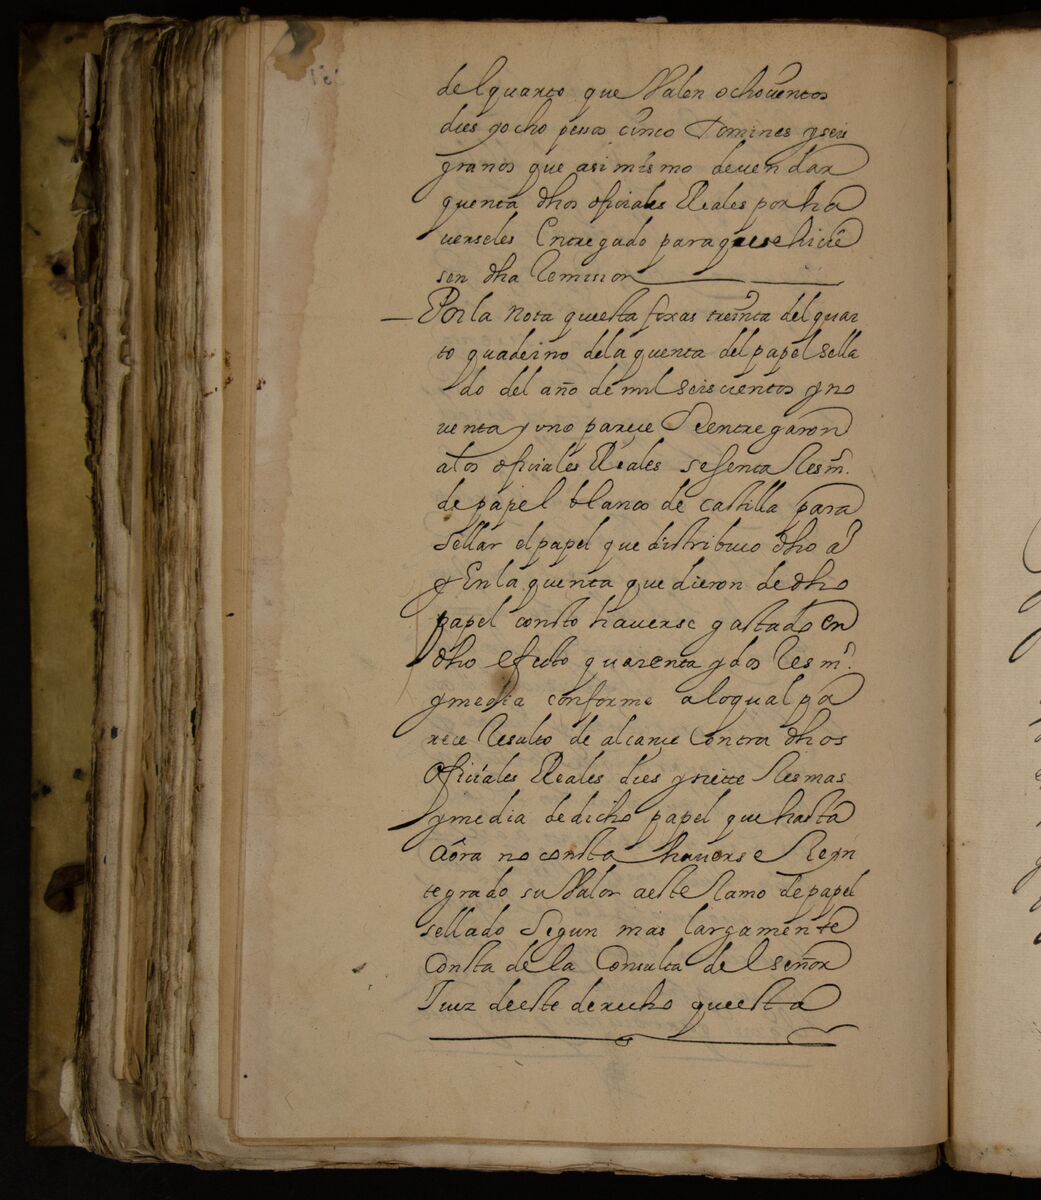 del quarto que Valen ochoçientos
dies y ocho pessos cinco tomines y seis
granos que asi mismo deven dar
quenta dhos ofiçiales Reales por ha
verseles Entregado para que se hiçie
sen dha Remision
Por la nota que esta foxas treinta del quar
to quaderno de la quenta del papel sella
do del año de mil seisçientos y no
venta y uno pareçe Se entregaron
a los ofiçiales Reales sesenta Resm.s
de papel blanco de castilla para
sellar el papel que distribuio dho a.º
y En la quenta que dieron de dho
papel consto haverse gastado en
dho efecto quarenta y dos Resm.s
y media conforme a lo qual pa
rece Resulto de alcançe Contra dhos
Ofiçiales Reales dies y siete Resmas
y media de dicho papel que hasta
aôra no consta haverse Rein
tegrado su Valor a este Ramo de papel
sellado Segun mas largamente
Consta de la Consulta del señor
Juez de este derecho que esta